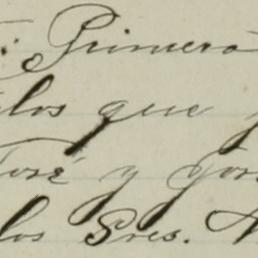 : Primera
los que
José y José
los Sres.